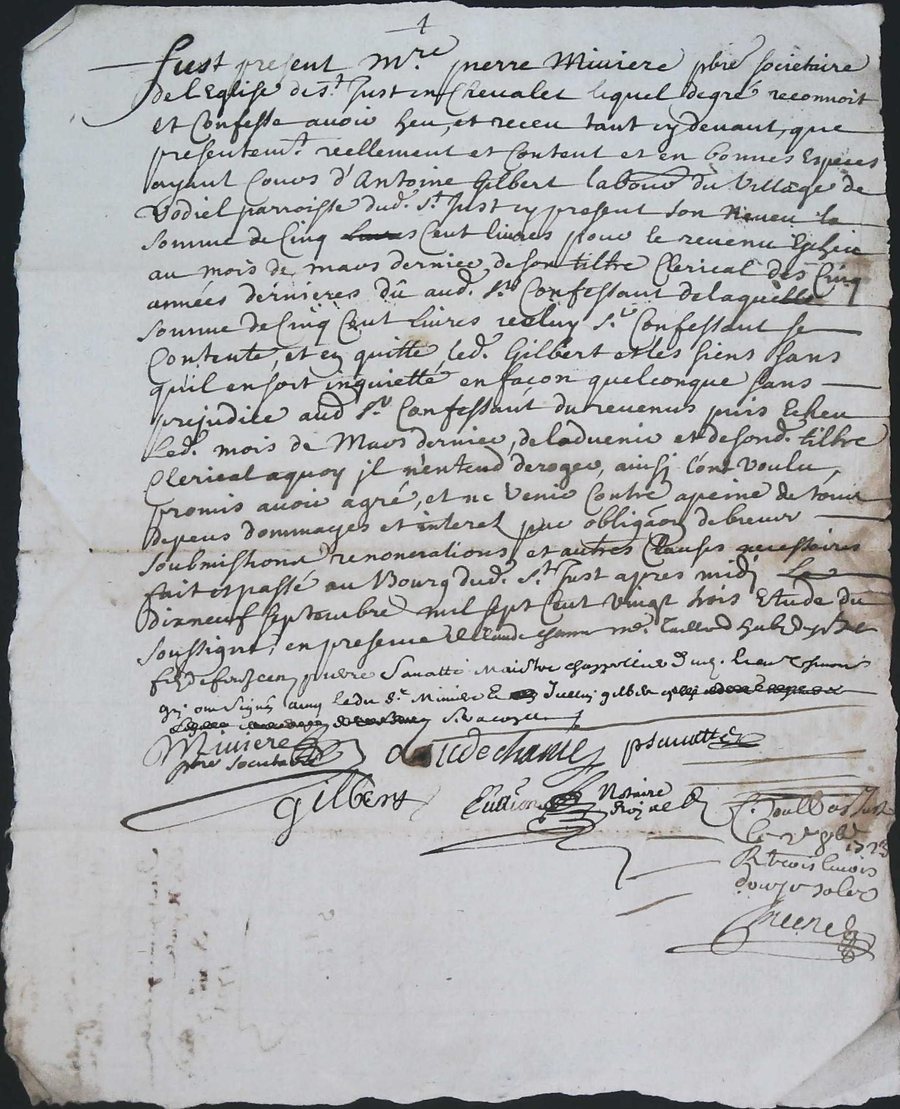 1
fust présent Mre pierre Miviere pbre societaire
de l'Eglise de st Just en Chevalet lequel de gré reconnoit
et Confesse avoir heu, et receu tant cy devant, que
presentemt reellement et Content et en bonnes Especes
ayant Cours d'Antoine Gilbert labour du Village de
Bodiel parroisse dud. st Just cy present son Neveu la
somme de Cinq Cent livres pour le revenu Echeu
au mois de mars dernier de son tiltre Clerical des Cinq
années dernieres dû aud. sr Confessant de laquelle
somme de Cinq Cent livres iceluy sr Confessant se
Contente, et en quitte led. Gilbert et les siens sans
quil en soit inquietté en façon quelconque sans
prejudice aud sr Confessant du revenus puis Echeu
led. mois de Mars dernier, de ladvenir et de sond. tiltre
Clerical aquoy jl n'entend deroger, ainsi l'ont voulu,
promis avoir agré, et ne venir Contre apeine de tous
depens dommages et interet par obligaon de biens
soubmissions renonciations et autres Clauses necessaires
fait et passé au Bourg dud. st Just apres midj Le
dixneuf septembre mil sept Cent vingt trois Etude du
soussigné, en presence de Claude chanu me
pierre Sauatte Maistre
qui ont signé avec ledit sr Miviere Gilbert
Miviere
pbre societaire
Claude chanu
psauatte
gilbert
Notaire
Royal
St Just
le 1723
R trois livres
douze sols